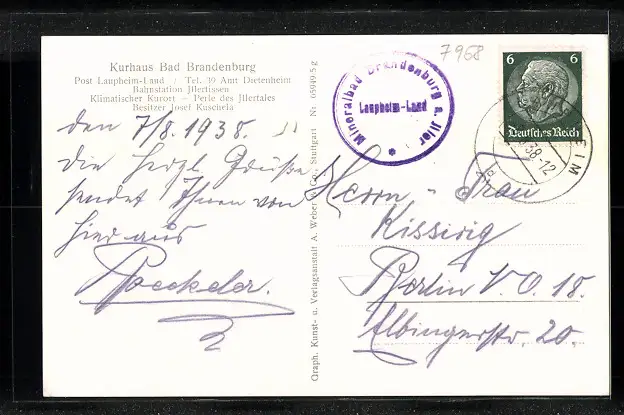 Kurhaus Bad Brandenburg
Post Laupheim-Land / Tel. 39 Amt Dietenheim
Bahnstation Jllertissen
Klimatischer Kurort – Perle des Jllertales
Besitzer Josef Kuschela
den 7/8. 1938.
die herzl. Grüße
sendet Ihnen von
hier aus
Graph. Kunst- u. Verlagsanstalt A. Weber & Co., Stuttgart Nr. 65949/5 g
Mineralbad Brandenburg a. Iller
Laupheim-Land
7968
6 6
Deutsches Reich
38-12
EIM
Herrn u. Frau
Kissirig
Berlin N.O. 18.
Elbingerstr. 20.